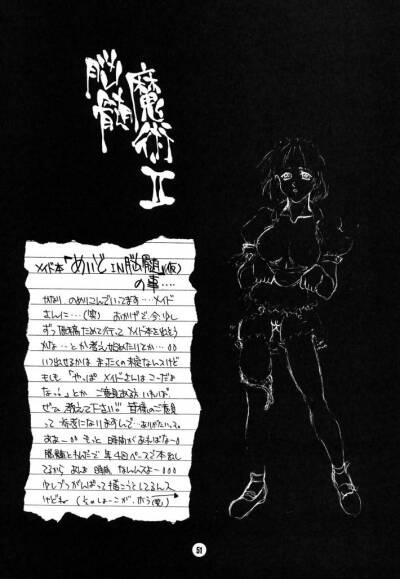 脳髄
魔術
II
メイド本「めいどIN脳髄」(仮)
の事‥‥
かなり のめりこんでいてます‥‥メイド
さんに‥‥(笑) おかげで 今、ゆし
ずつ原稿ためて行って メイド本を出そう
かな‥‥とか考え始めたいてか‥‥
いつ出せるかは まったくの未定なんスけど
もしも 「やっぱ メイドさんは こーだよ
な‥!」とか ご意見ある方 いれば、
ぜひ 教えて下さい!! 皆様のご意見
って 参考になりますんで‥‥ありがたいっス。
ああー もっと 時間があればなー
脳髄さんだんで 年4回ペースで本出し
てるから よしよ 時間 なしんスよー
ゆしずつがんばって 描こうとしてるんス
けどね
51